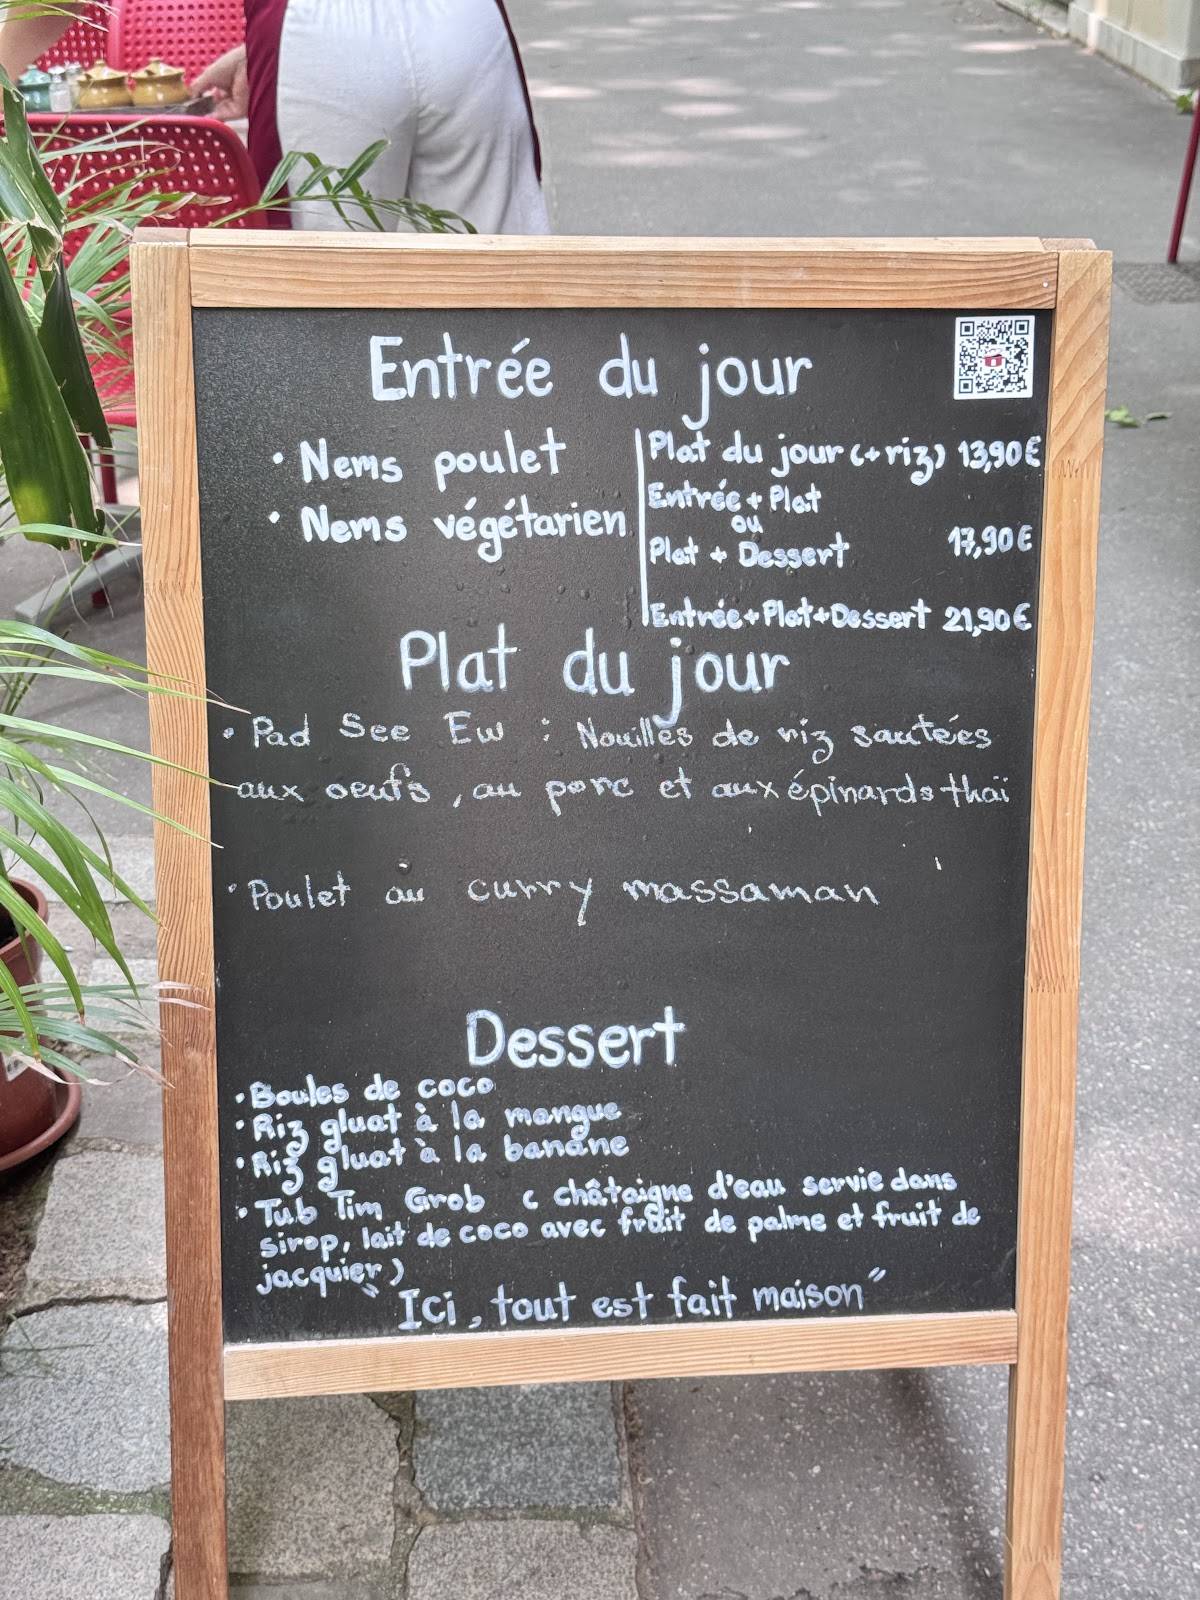 Entrée du jour
• Nems poulet
• Nems végétarien
Plat du jour (+ riz) 13,90€
Entrée + Plat
ou
Plat + Dessert 17,90€
Entrée+Plat+Dessert 21,90€
Plat du jour
• Pad See Ew : Nouilles de riz sautées
aux oeufs, au porc et aux épinards thaï
• Poulet au curry massaman
Dessert
• Boules de coco
• Riz gluat à la mangue
• Riz gluat à la banane
• Tub Tim Grob ( châtaigne d'eau servie dans
sirop, lait de coco avec fruit de palme et fruit de
jacquier)
" Ici, tout est fait maison"